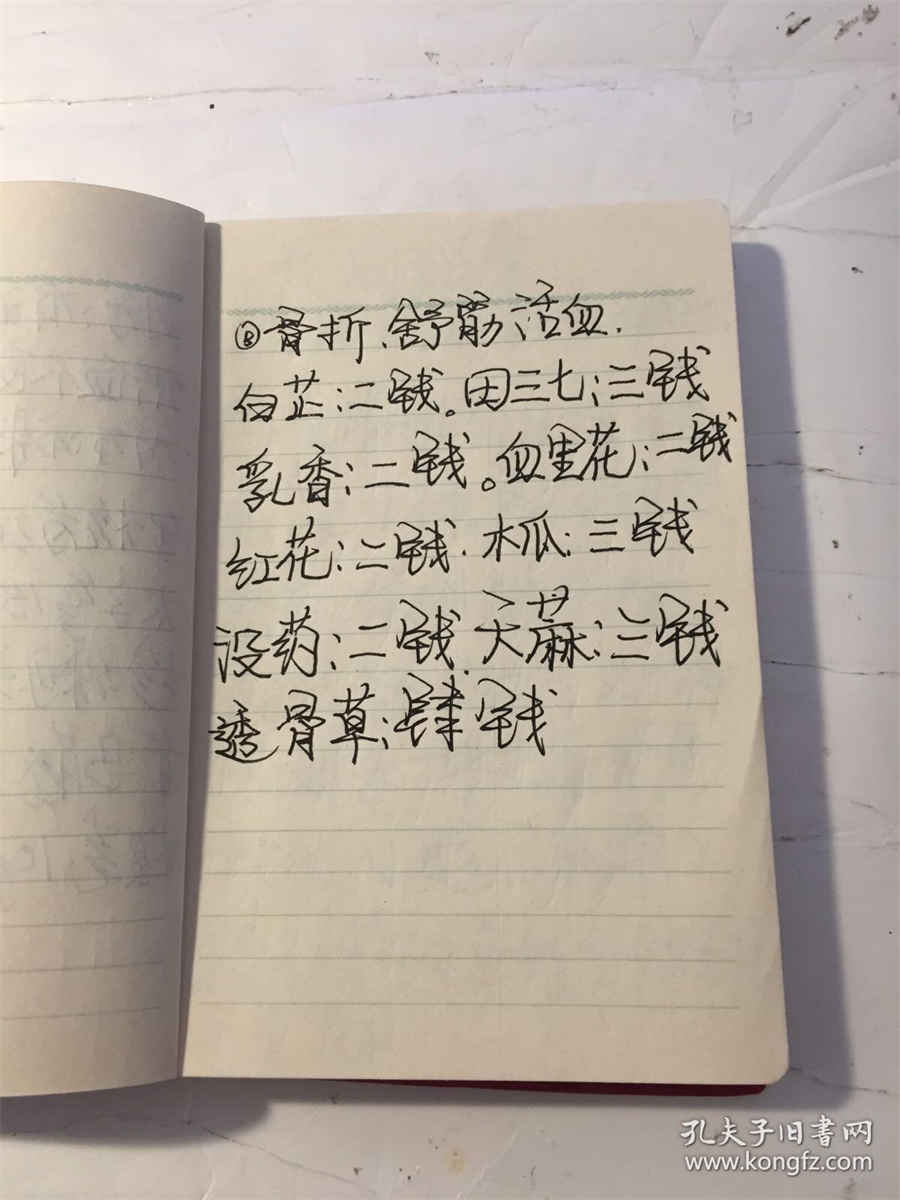 ⑧骨折、舒筋活血.
白芷:二钱。田三七:三钱
乳香:二钱。血里花:二钱
红花:二钱.木瓜:三钱
没药:二钱.天蔴:三钱
透骨草:肆钱
孔夫子旧書网
www.kongfz.com